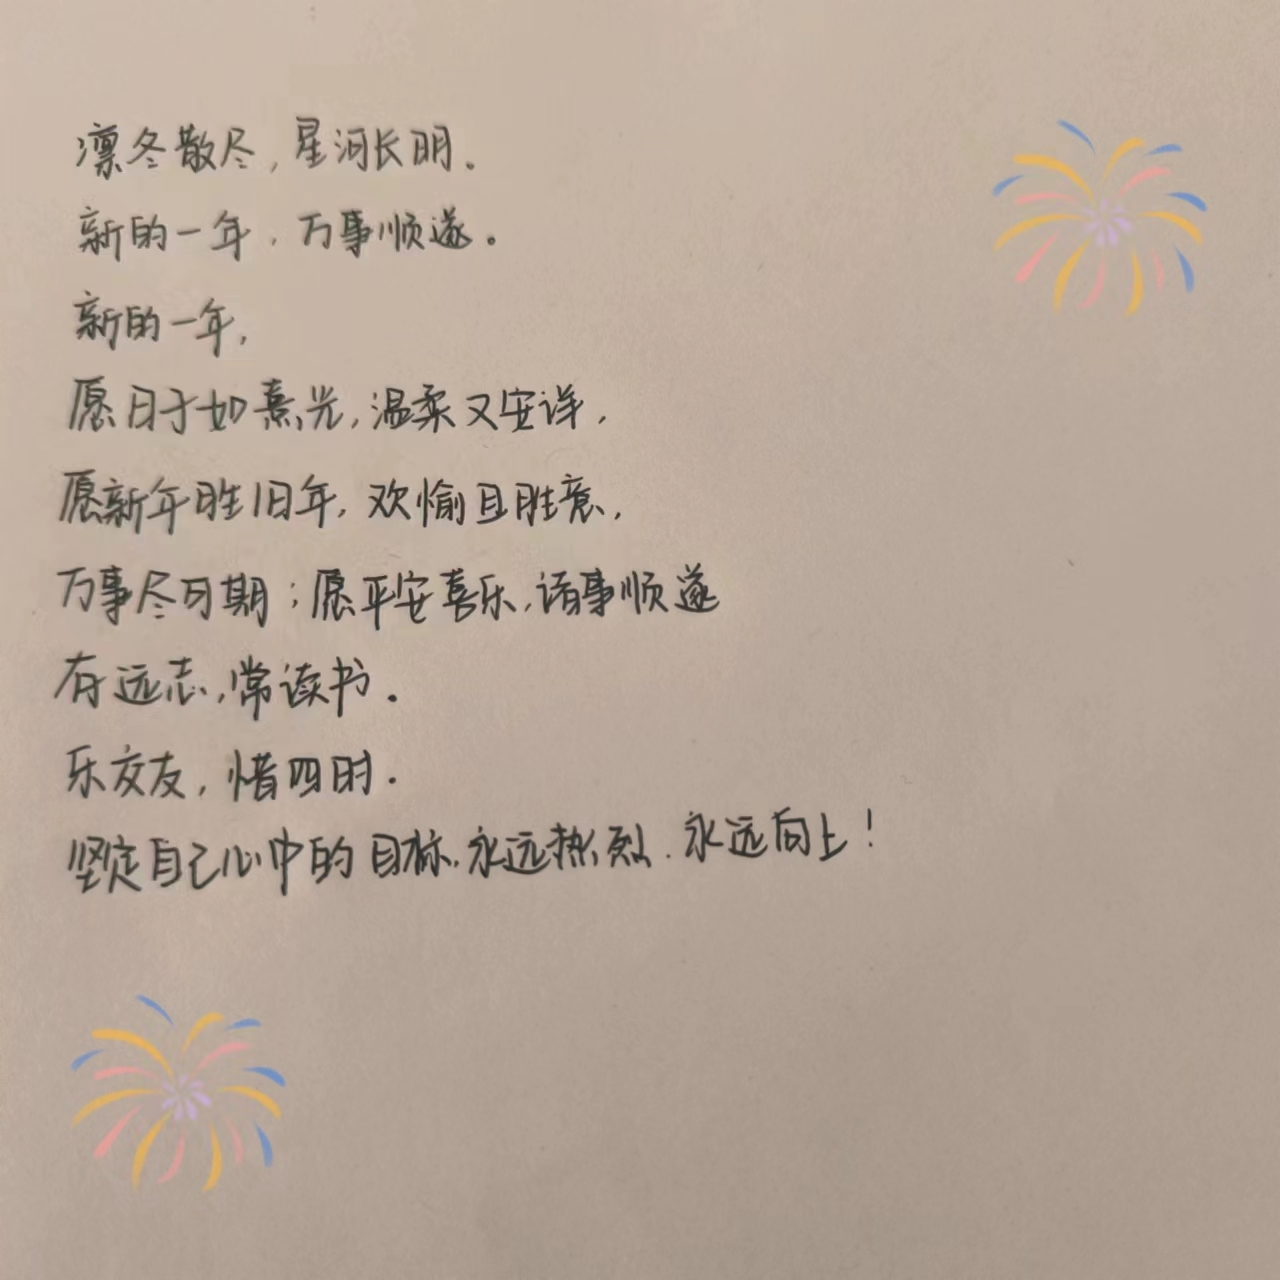 凛冬散尽，星河长明。
新的一年，万事顺遂。
新的一年，
愿日子如熹光，温柔又安详，
愿新年胜旧年，欢愉且胜意，
万事尽可期；愿平安喜乐，诸事顺遂
有远志，常读书．
乐交友，惜四时．
坚定自己心中的目标，永远热烈．永远向上！